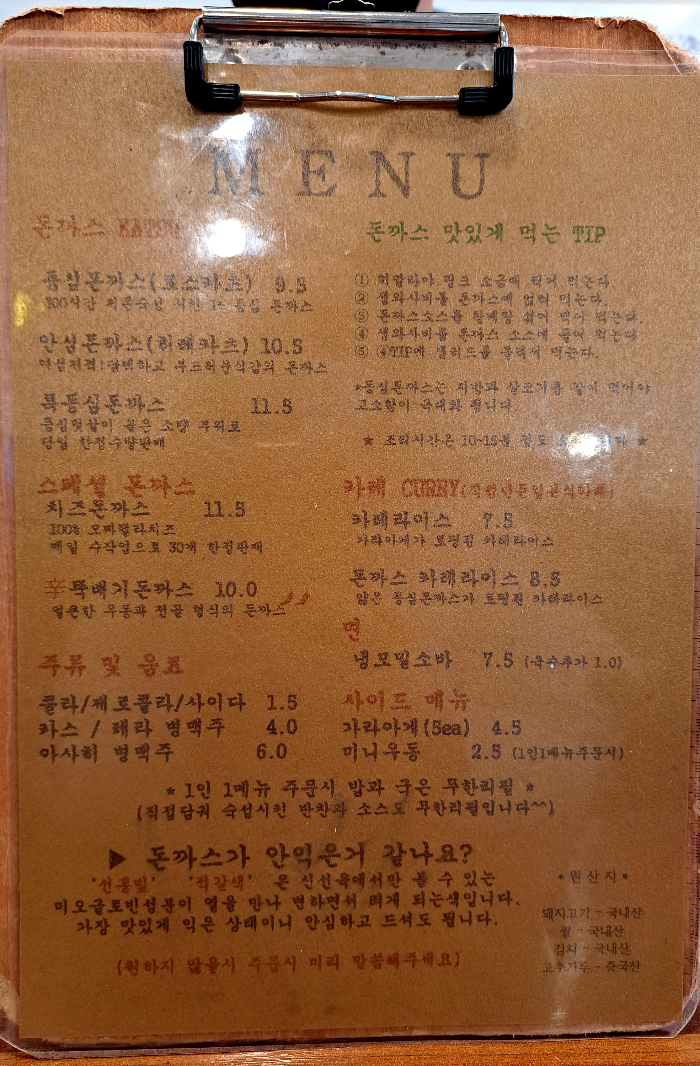 MENU
돈까스 KATSU
등심돈까스(로스카츠) 9.5
300시간 저온숙성 시킨 1+ 등심 돈까스
안심돈까스(히레카츠) 10.5
여심저격!담백하고 부드러운식감의 돈까스
특등심돈까스 11.5
등심덧살이 붙은 소량 부위로
당일 한정수량판매
스페셜 돈까스
치즈돈까스 11.5
100% 모짜렐라치즈
매일 수작업으로 30개 한정판매
辛뚝배기돈까스 10.0
얼큰한 우동과 전골 형식의 돈까스
주류 및 음료
콜라/제로콜라/사이다 1.5
카스 / 테라 병맥주 4.0
아사히 병맥주 6.0
돈까스 맛있게 먹는 TIP
① 히말라야 핑크 소금에 찍어 먹는다.
② 생와사비를 돈까스에 얹혀 먹는다.
③ 돈까스소스를 섞어 찍어 먹는다.
④ 생와사비를 돈까스 소스에 풀어 먹는다
⑤ ④TIP에 생위드를 올려서 먹는다.
*등심돈까스는 지방과 살코기를 같이 먹어야
고소함이 극대화 됩니다.
★ 조리시간은 10-15분 정도 ★
카레 CURRY
카레라이스 7.5
가라아게가 토핑된 카레라이스
돈까스 카레라이스 8.5
얇은 등심돈까스가 토핑된 카레라이스
면
냉모밀소바 7.5 (국수추가 1.0)
사이드 메뉴
가라아게(5ea) 4.5
미니우동 2.5 (1인1메뉴주문시)
* 1인 1메뉴 주문시 밥과 국은 무한리필 *
(직접담궈 숙성시킨 반찬과 소스도 무한리필입니다^^)
▶ 돈까스가 안익은거 같나요?
'선홍빛' '적갈색' 은 신선육에서만 볼 수 있는
미오글로빈성분이 열을 만나 변하면서 띄게 되는색입니다.
가장 맛있게 익은 상태이니 안심하고 드셔도 됩니다.
(원하지 않을시 주문시 미리 말씀해주세요)
*원산지*
돼지고기 - 국내산
쌀 - 국내산
김치 - 국내산
고추가루 - 중국산